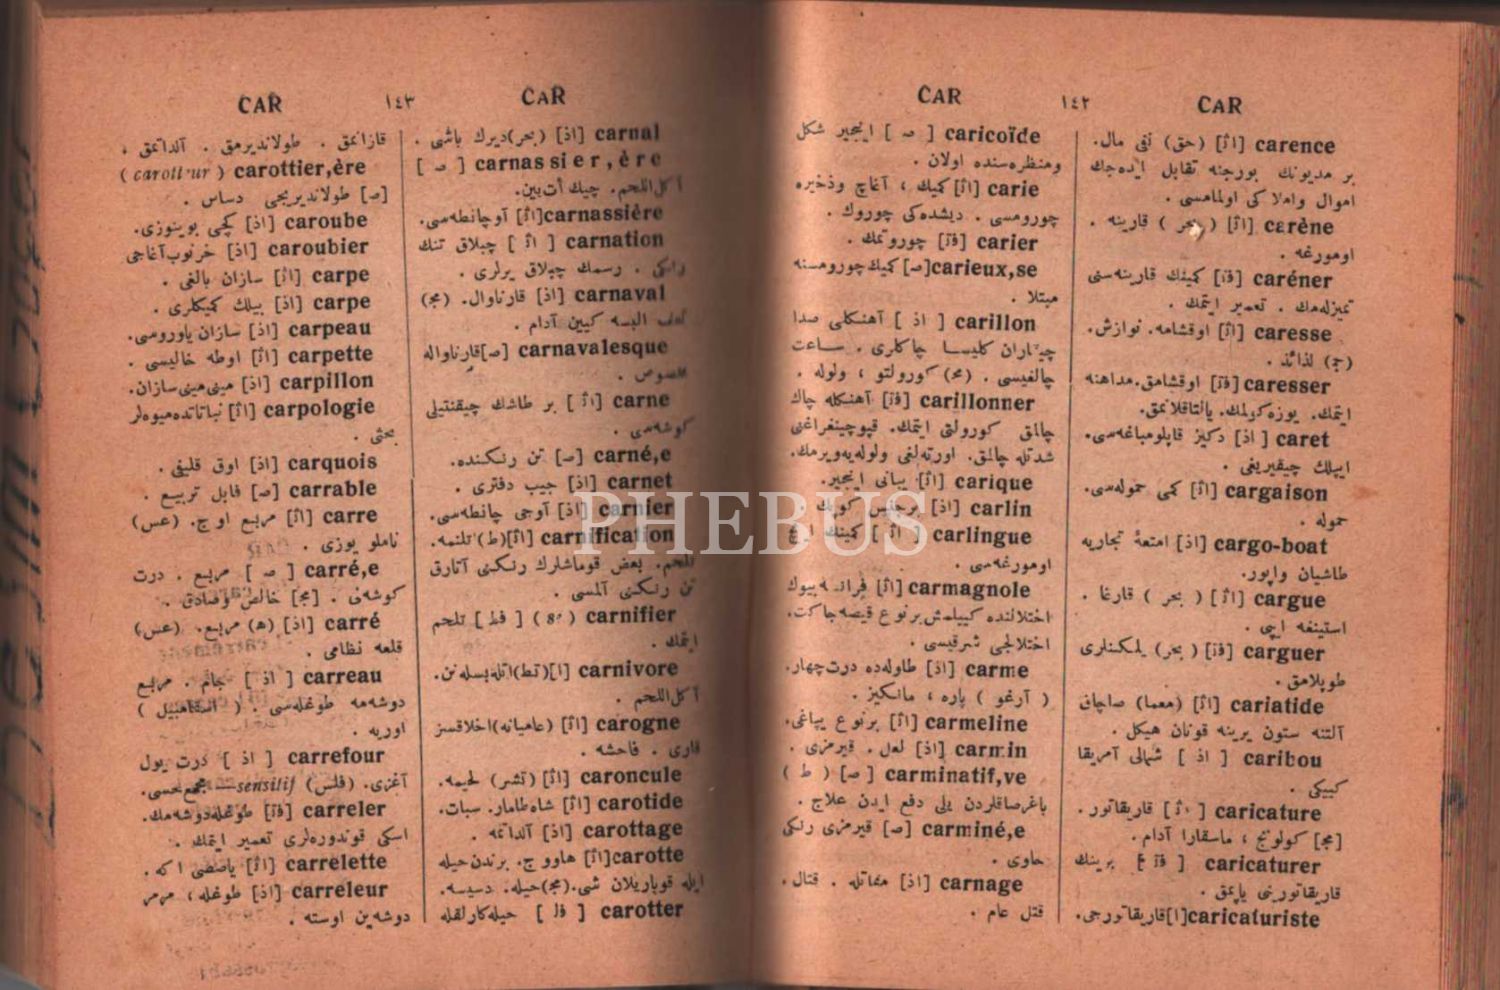 CAR
١٤٢
CAR
carence [اث] (حق) نفی مال.
بر مدیونك بورجنه تقابل ایده‌جك
اموال واملا کی اولمامسی.
carène [اث] (بحر) قارینه.
اومورغه.
caréner [فؔ] کمینك قارینه‌سنی
تمیزله‌مك. تعمیر ایتمك.
caresse [اث] اوقشامه. نوازش.
(ج) لذائذ.
caresser [فؔ] اوقشامق. مداهنه
ایتمك. یوزه‌کولمك. یالتاقلانمق.
caret [اذ] دکیز قاپلومباغه‌سی.
ایپلك چیقیریغی.
cargaison [اث] کمی حموله‌سی.
حموله.
cargo-boat [اذ] امتعهٔ تجاریه
طاشیان واپور.
cargue [اث] (بحر) قارغا.
استینغه ایپی.
carguer [فؔ] (بحر) یلکنلری
طوپلامق.
cariatide [اث] (معما) صاچاق
آلتنه ستون یرینه قونان هیکل.
caribou [اذ] شمالی آمریقا
کییکی.
caricature [اث] قاریقاتور.
[مج] کولونج، ماسقارا آدام.
caricaturer [فؔ] برینك
قاریقاتورینی یاپمق.
caricaturiste [ا] قاریقاتورجی.
caricoïde [ص] انجیر شکل
ومنظره‌سنده اولان.
carie [اث] کمیك، آغاج وذخیره
چورومسی. دیشده‌کی چوروك.
carier [فؔ] چوروتمك.
carieux,se [ص] کمیك چورومسنه
مبتلا.
carillon [اذ] آهنکلی صدا
چیقاران کلیسا چاکلری. ساعت
چالغیسی. (مج) کورولتو، ولوله.
carillonner [فؔ] آهنکله چاك
چالمق کورولتی ایتمك. قپوچینغراغنی
شدتله چالمق. اورته‌لغی ولوله‌یه‌ویرمك.
carique [اث] یبانی انجیر.
carlin [اذ] برجنس کوپك
carlingue [اث] کمینك ایچ
اومورغه‌سی.
carmagnole [اث] فرانسه بیوك
اختلالنده کییلمش برنوع قیصه‌جاکت.
اختلالجی شرقیسی.
carme [اذ] طاوله‌ده درت‌چهار.
(آرغو) پاره، مانکیز.
carmeline [اث] برنوع یپاغی.
carmin [اذ] لعل. قیرمزی.
carminatif,ve [ص] (ط)
باغرصاقلردن یلی دفع ایدن علاج.
carminé,e [ص] قیرمزی رنکی
حاوی.
carnage [اذ] مقاتله. قتال.
قتل عام.
CAR
١٤٣
CAR
carnal [اذ] (بحر) دیرك باشی.
carnassier,ère [ص]
آکل‌اللحم. چیك أت‌یین.
carnassière [اث] آوچانطه‌سی.
carnation [اث] چپلاق تنك
رنکی. رسمك چپلاق یرلری.
carnaval [اذ] قارناوال. (مج)
البسه کیین آدام.
carnavalesque [ص] قارناواله
مخصوص.
carne [اث] بر طاشك چیقنتیلی
کوشه‌سی.
carné,e [ص] تن رنکنده.
carnet [اذ] جیب دفتری.
carnier [اذ] آوجی چانطه‌سی.
carnification [اث] (ط) تلنمه.
تلحم. بعض قوماشلرك رنکنی آتارق
تن رنکنی آلمسی.
carnifier (se) [فط] تلحم
ایتمك.
carnivore [ا] (تط) اتله‌بسله‌نن.
آکل‌اللحم.
carogne [اث] (عامیانه) اخلاقسز
قاری. فاحشه.
caroncule [اث] (تشر) لحیمه.
carotide [اث] شاه‌طامار. سبات.
carottage [اذ] آلداتمه.
carotte [اث] هاووج. برندن‌حیله
ایله قوپاریلان شی. (مج) حیله. دسیسه.
carotter [فؔ] حیله‌کارلقله
قازانمق. طولاندیرمق. آلداتمق.
carottier,ère (carotteur)
[ص] طولاندیریجی دساس.
caroube [اذ] کچی بوینوزی.
caroubier [اذ] خرنوب‌آغاجی
carpe [اث] سازان بالغی.
carpe [اذ] بیلك کمیکلری.
carpeau [اذ] سازان یاوروسی.
carpette [اث] اوطه خالیسی.
carpillon [اذ] مینی‌مینی‌سازان.
carpologie [اث] نباتاتده‌میوه‌لر
بحثی.
carquois [اذ] اوق قلیفی.
carrable [ص] قابل تربیع.
carre [اث] مربع اوج. (عس)
ناملو یوزی.
carré,e [ص] مربع. درت
کوشه‌لی. [مج] خالص وصادق.
carré [اذ] (ه) مربع. (عس)
قلعه نظامی.
carreau [اذ] جام. مربع
دوشه‌مه طوغله‌سی. (اسقامبیل)
اوریه.
carrefour [اذ] درت یول
آغزی. (فلس) sensitif — مجمع‌حسی.
carreler [فؔ] طوغله‌دوشه‌مك.
اسکی قوندوره‌لری تعمیر ایتمك.
carrelette [اث] یاصصی اکه.
carreleur [اذ] طوغله، مرمر
دوشه‌ین اوسته.
PHEBUS